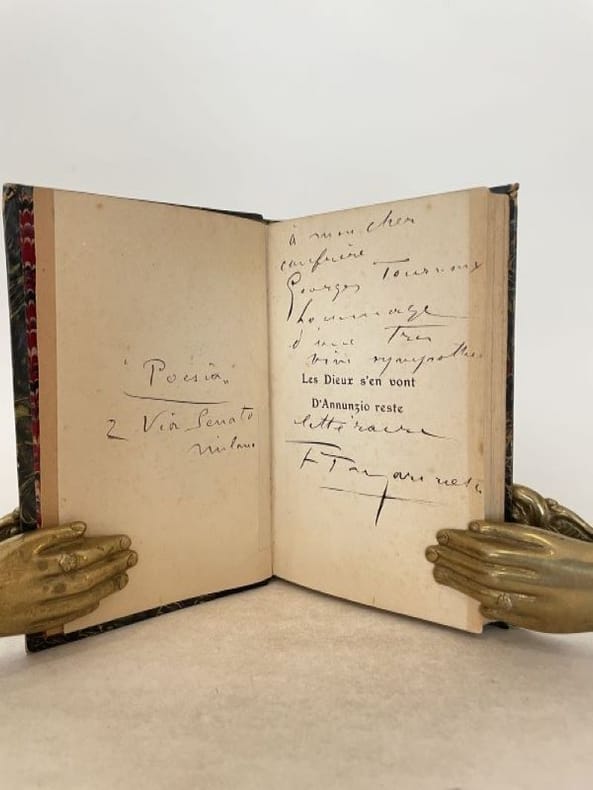 "Poesia"
2 Via Senato
Milano
à mon cher
confrère
Georges Tourroux
hommage
d'une très
vive sympathie
Les Dieux s'en vont
D'Annunzio reste
littéraire
F T Marinetti